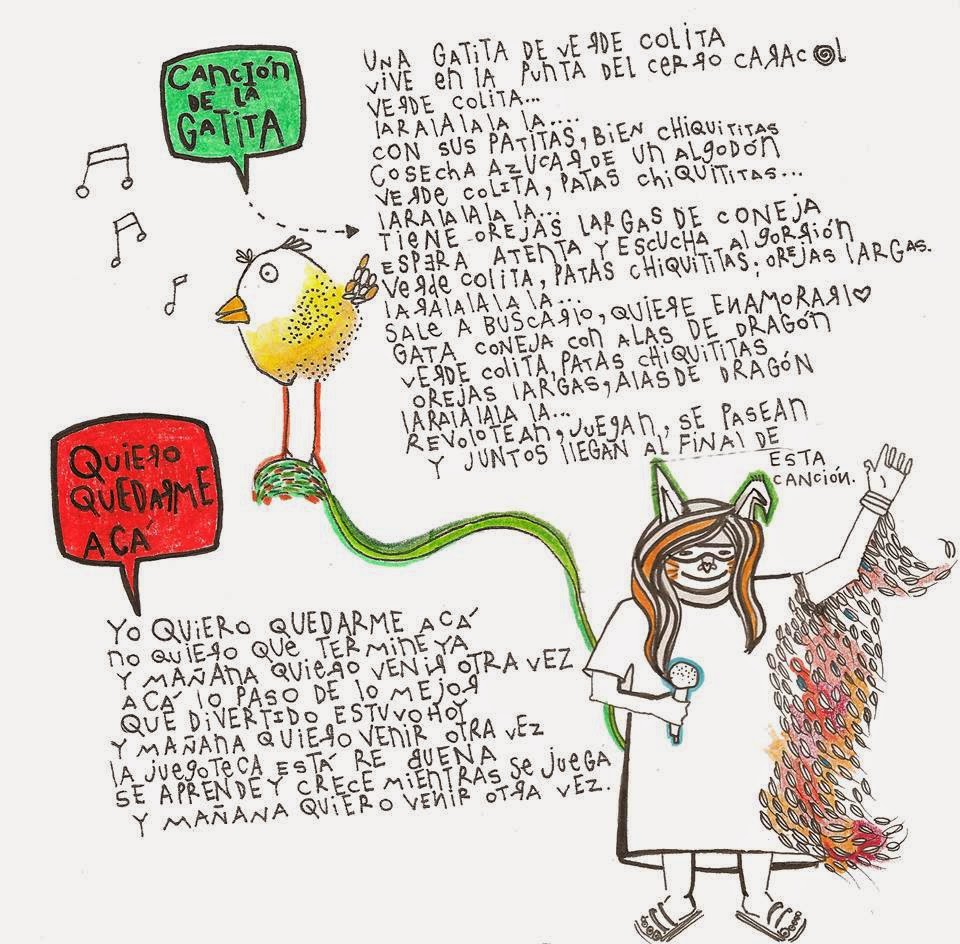 CANCIÓN
DE LA
GATITA
UNA GATITA DE VERDE COLITA
VIVE EN LA PUNTA DEL CERRO CARACOL
VERDE COLITA...
LARALALALA LA....
CON SUS PATITAS, BIEN CHIQUITITAS
COSECHA AZUCAR DE UN ALGODÓN
VERDE COLITA, PATAS CHIQUITITAS...
LARALALALA LA...
TIENE OREJAS LARGAS DE CONEJA
ESPERA ATENTA Y ESCUCHA AL GORRIÓN
VERDE COLITA, PATAS CHIQUITITAS, OREJAS LARGAS.
LARALALALA LA...
SALE A BUSCARLO, QUIERE ENAMORARLO
GATA CONEJA CON ALAS DE DRAGÓN
VERDE COLITA, PATAS CHIQUITITAS
OREJAS LARGAS, ALAS DE DRAGÓN
LARALALALA LA...
REVOLOTEAN, JUEGAN, SE PASEAN
Y JUNTOS LLEGAN AL FINAL DE
ESTA
CANCIÓN.
QUIERO
QUEDARME
ACÁ
YO QUIERO QUEDARME ACÁ
NO QUIERO QUE TERMINE YA
Y MAÑANA QUIERO VENIR OTRA VEZ
ACÁ LO PASO DE LO MEJOR
QUE DIVERTIDO ESTUVO HOY
Y MAÑANA QUIERO VENIR OTRA VEZ
LA JUEGOTECA ESTÁ RE BUENA
SE APRENDE Y CRECE MIENTRAS SE JUEGA
Y MAÑANA QUIERO VENIR OTRA VEZ.